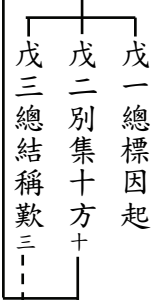 戊一總標因起
戊二別集十方十
戊三總結稱歎三